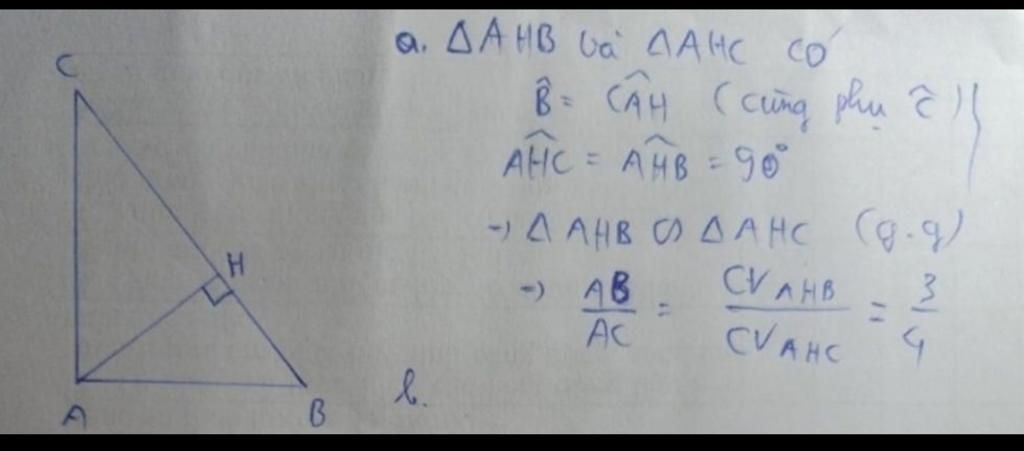 C
H
A
B
a. ΔAHB và ΔAHC có
B̂ = CÂH (cùng phụ Ĉ)
AĤC = AĤB = 90°
→ Δ AHB ∽ Δ AHC (g.g)
→ AB/AC = CV AHB/CV AHC = 3/4
b.